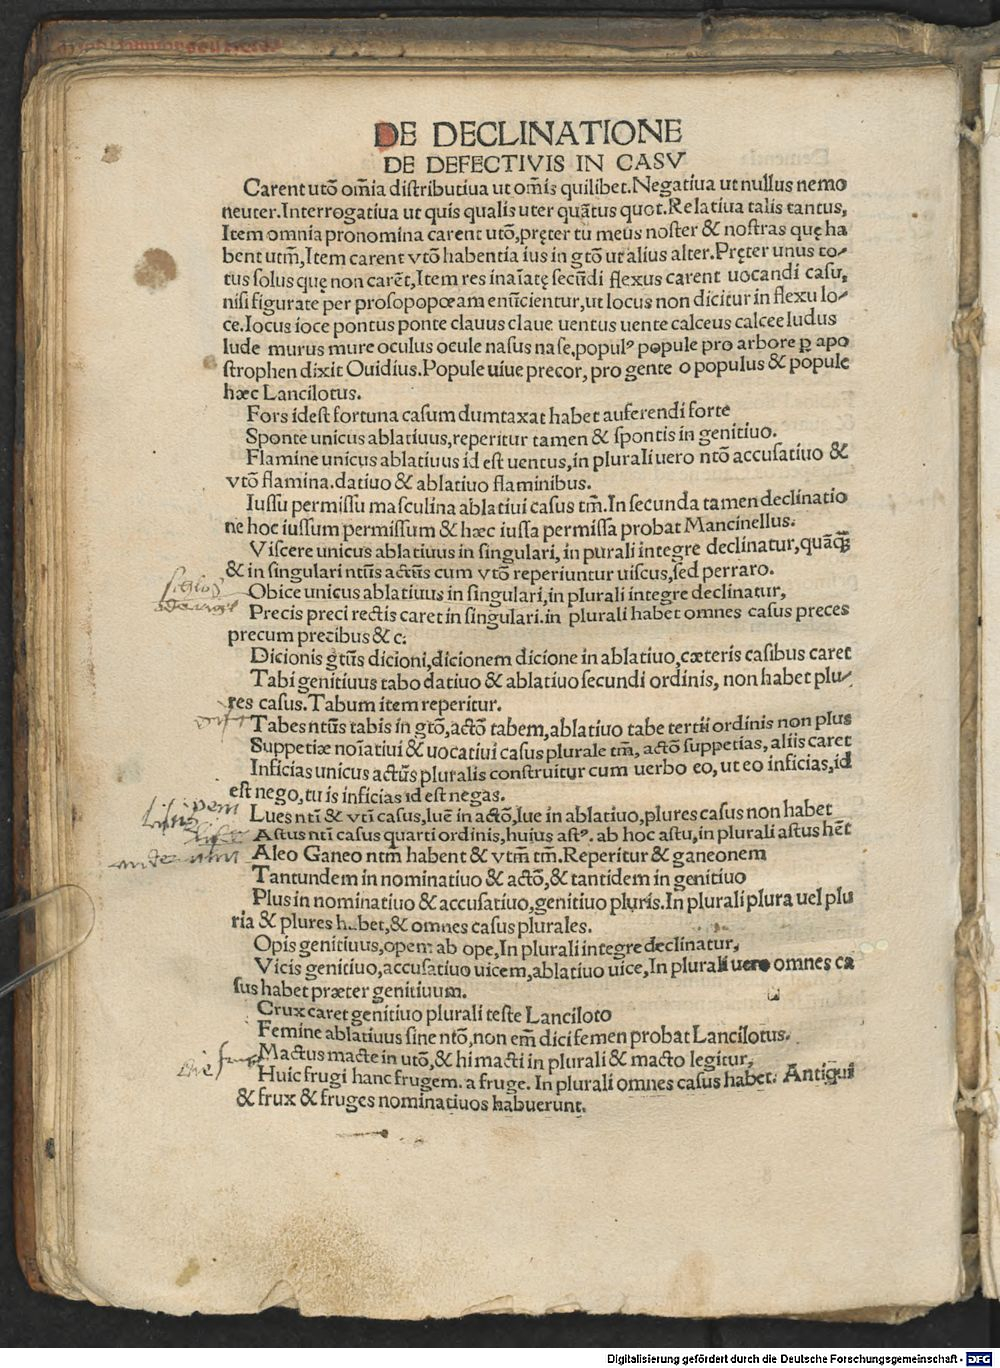 DE DECLINATIONE
DE DEFECTIVIS IN CASV
Carent utō om̄ia distributiua ut om̄is quilibet. Negatiua ut nullus nemo
neuter. Interrogatiua ut quis qualis uter quātus quot. Relatiua talis tantus,
Item omnia pronomina carent utō, pręter tu meus noster & nostras quę ha
bent utm̄, Item carent vtō habentia ius in gtō ut alius alter. Pręter unus to⸗
tus solus quę non carēt, Item res inaīatę secūdi flexus carent uocandi casu,
nisi figurate per prosopopœam enūcientur, ut locus non dicitur in flexu lo⸗
ce. Iocus ioce pontus ponte clauus claue uentus uente calceus calcee ludus
lude murus mure oculus ocule nasus nase, populꝰ popule pro arbore ꝑ apo
strophen dixit Ouidius. Popule uiue precor, pro gente o populus & popule
hæc Lancilotus.
Fors idest fortuna casum dumtaxat habet auferendi forte
Sponte unicus ablatiuus, reperitur tamen & spontis in genitiuo.
Flamine unicus ablatiuus id est uentus, in plurali uero ntō accusatiuo &
vtō flamina. datiuo & ablatiuo flaminibus.
Iussu permissu masculina ablatiui casus tm̄. In secunda tamen declinatio
ne hoc iussum permissum & hæc iussa permissa probat Mancinellus.
Viscere unicus ablatiuus in singulari, in purali integre declinatur, quāqꝫ
& in singulari ntūs actūs cum vtō reperiuntur uiscus, sed perraro.
Obice unicus ablatiuus in singulari, in plurali integre declinatur,
Precis preci rectis caret in singulari. in plurali habet omnes casus preces
precum precibus & c.
Dicionis gtūs dicioni, dicionem dicione in ablatiuo, cæteris casibus caret
Tabi genitiuus tabo datiuo & ablatiuo secundi ordinis, non habet plu⸗
res casus. Tabum item reperitur.
Tabes ntūs tabis in gtō, actō tabem, ablatiuo tabe tertii ordinis non plus
Suppetiæ noīatiui & uocatiui casus plurale tm̄, actō suppetias, aliis caret
Inficias unicus actūs pluralis construitur cum uerbo eo, ut eo inficias, id
est nego, tu is inficias id est negas.
Lues ntī & vtī casus, luē in actō, lue in ablatiuo, plures casus non habet
Astus ntī casus quarti ordinis, huius astꝰ. ab hoc astu, in plurali astus hēt
Aleo Ganeo ntm̄ habent & vtm̄ tm̄. Reperitur & ganeonem
Tantundem in nominatiuo & actō, & tantidem in genitiuo
Plus in nominatiuo & accusatiuo, genitiuo pluris. In plurali plura uel plu
ria & plures habet, & omnes casus plurales.
Opis genitiuus, opem ab ope, In plurali integre declinatur,
Vicis genitiuo, accusatiuo uicem, ablatiuo uice, In plurali uero omnes ca
sus habet præter genitiuum.
Crux caret genitiuo plurali teste Lanciloto
Femine ablatiuus sine ntō, non em̄ dici femen probat Lancilotus.
Mactus macte in utō, & hi macti in plurali & macto legitur,
Huic frugi hanc frugem. a fruge. In plurali omnes casus habet. Antiqui
& frux & fruges nominatiuos habuerunt.
Digitalisierung gefördert durch die Deutsche Forschungsgemeinschaft - DFG